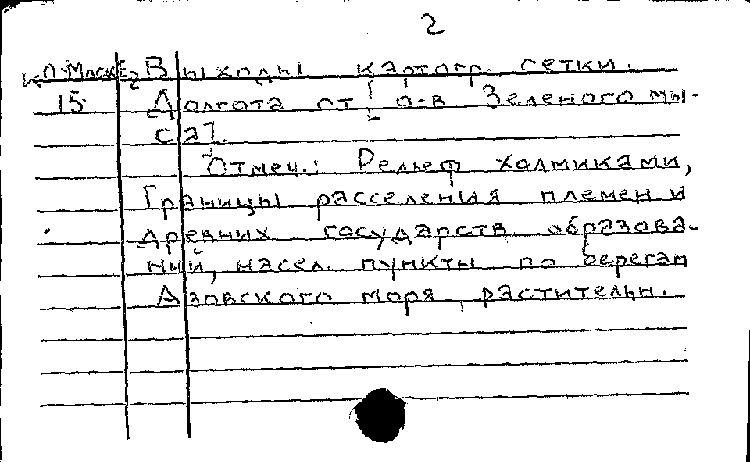 2
Выходы картогр. сетки.
15 Долгота от [ о-в Зеленого мы-
са].
Отмеч.: Рельеф холмиками,
Границы расселения племен и
древних государств. образова-
ний, насел. пункты по берегам
Азовского моря, растительн.